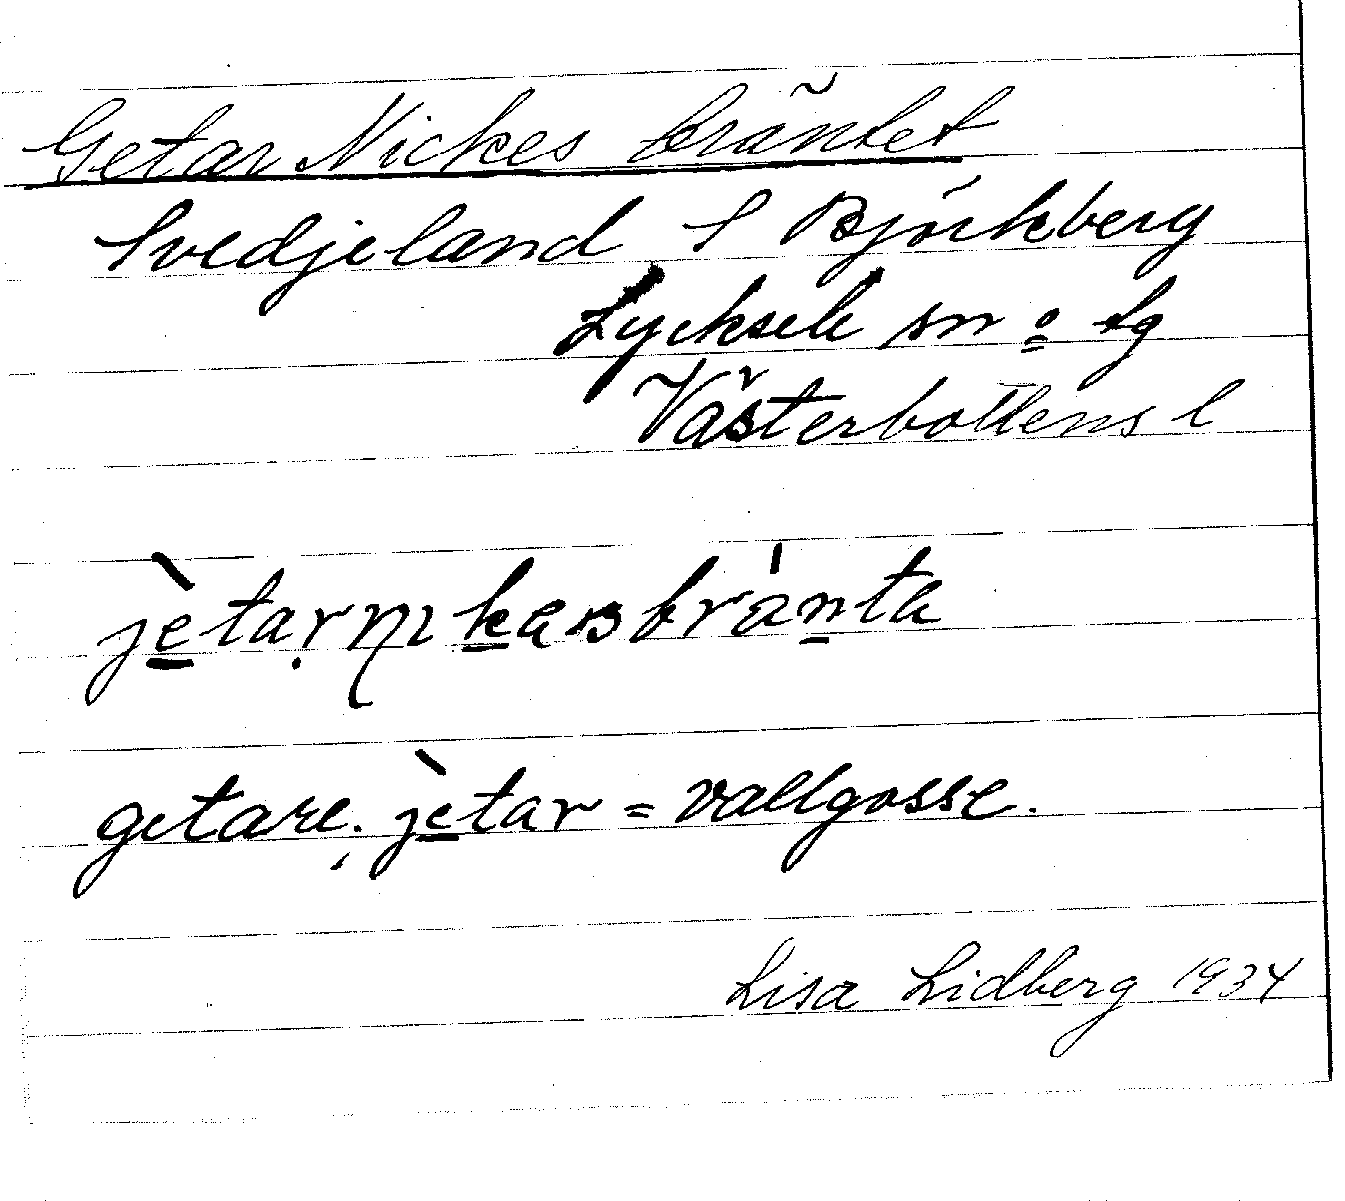 Getar Nickes bräntet
Svedjeland S Björkberg
Lycksele sn o lg
Västerbottens l
jètarnikasbránta
getare, jètar = vallgosse.
Lisa Lidberg 1934